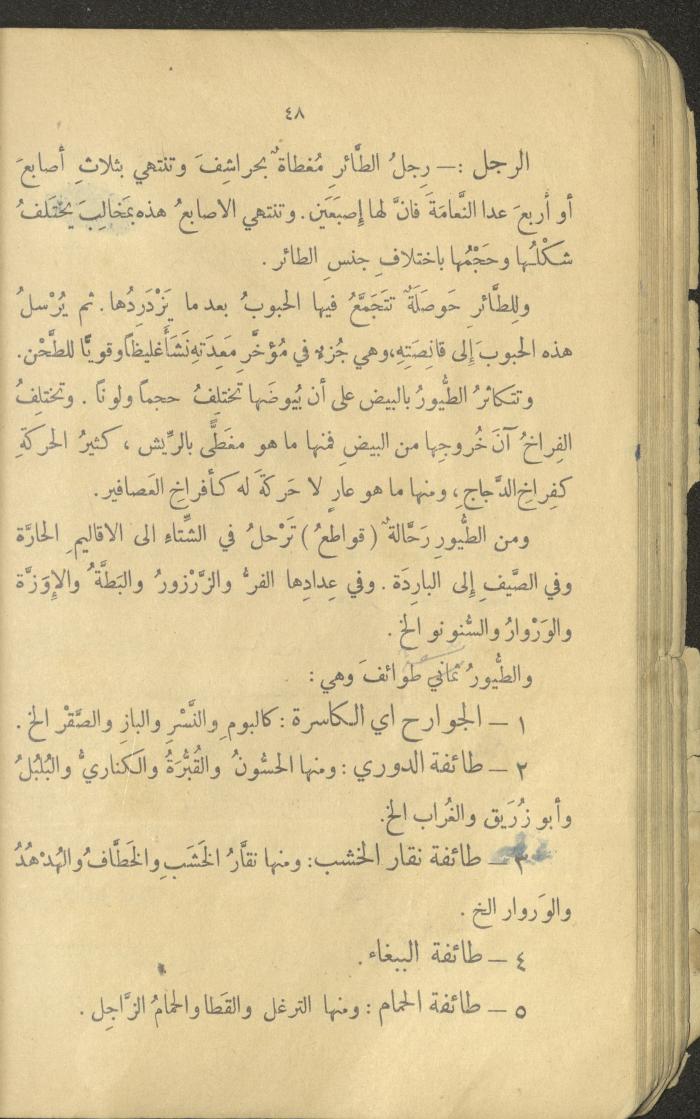 ٤٨
الرجل :— رِجلُ الطَّائرِ مُغطاةٌ بحراشِفَ وتنتهي بثلاثِ أصابعَ
أو أربعَ عدا النَّعامَةَ فانَّ لها إصبَعَين. وتنتهي الاصابعُ هذه بمَخالِبَ يختَلفُ
شكْلُها وحَجْمُها باختلافِ جنسِ الطائر .
وللِطَّائرِ حَوصَلَةٌ تَتَجَمَّعُ فيها الحبوبُ بعد ما يَزْدَرِدُها. ثم يُرْسلُ
هذه الحبوبَ إلى قانِصَتِهِ، وهي جُزءٌ في مُؤخَّرِ مَعِدَتِهِ نَشَأَ غليظاً وقويًّا للطَّحْن.
وتتكاثرُ الطُّيورُ بالبيض على أن بُيوضَها تختلِفُ حجماً ولوناً . وتختلِفُ
الفِراخُ آنَ خُروجِها من البيضِ فمنها ما هو مغَطًّى بالرِّيش ، كثيرُ الحركةِ
كفِراخِ الدَّجاجِ، ومنها ما هو عارٍ لا حَركَةَ له كأفراخِ العَصافير.
ومن الطُّيورِ رَحَّالةٌ ( قواطعُ ) تَرْحلُ في الشِّتاءِ الى الاقاليمِ الحارَّة
وفي الصَّيفِ إلى البارِدَة . وفي عِدادِها الفرُّ والزَّرْزورُ والبَطَّةُ والإوَزَّة
والوَرْوارُ والسُّنونو الخ .
والطُّيورُ ثماني طَوائفَ وهي :
١ — الجوارح اي الكاسرة : كالبومِ والنَّسْرِ والبازِ والصَّقْر الخ .
٢ — طائفة الدوري : ومنها الحسُّونُ والقُبُّرَةُ والكناريُّ والبُلبُلُ
وأبو زُرَيق والغُراب الخ.
٣ — طائفة نقار الخشب: ومنها نقَّارُ الخَشَبِ والخَطَّافُ والهُدْهُدُ
والوَروار الخ .
٤ — طائفة الببغاء .
٥ — طائفة الحمام : ومنها الترغل والقَطا والحمامُ الزَّاجِل .